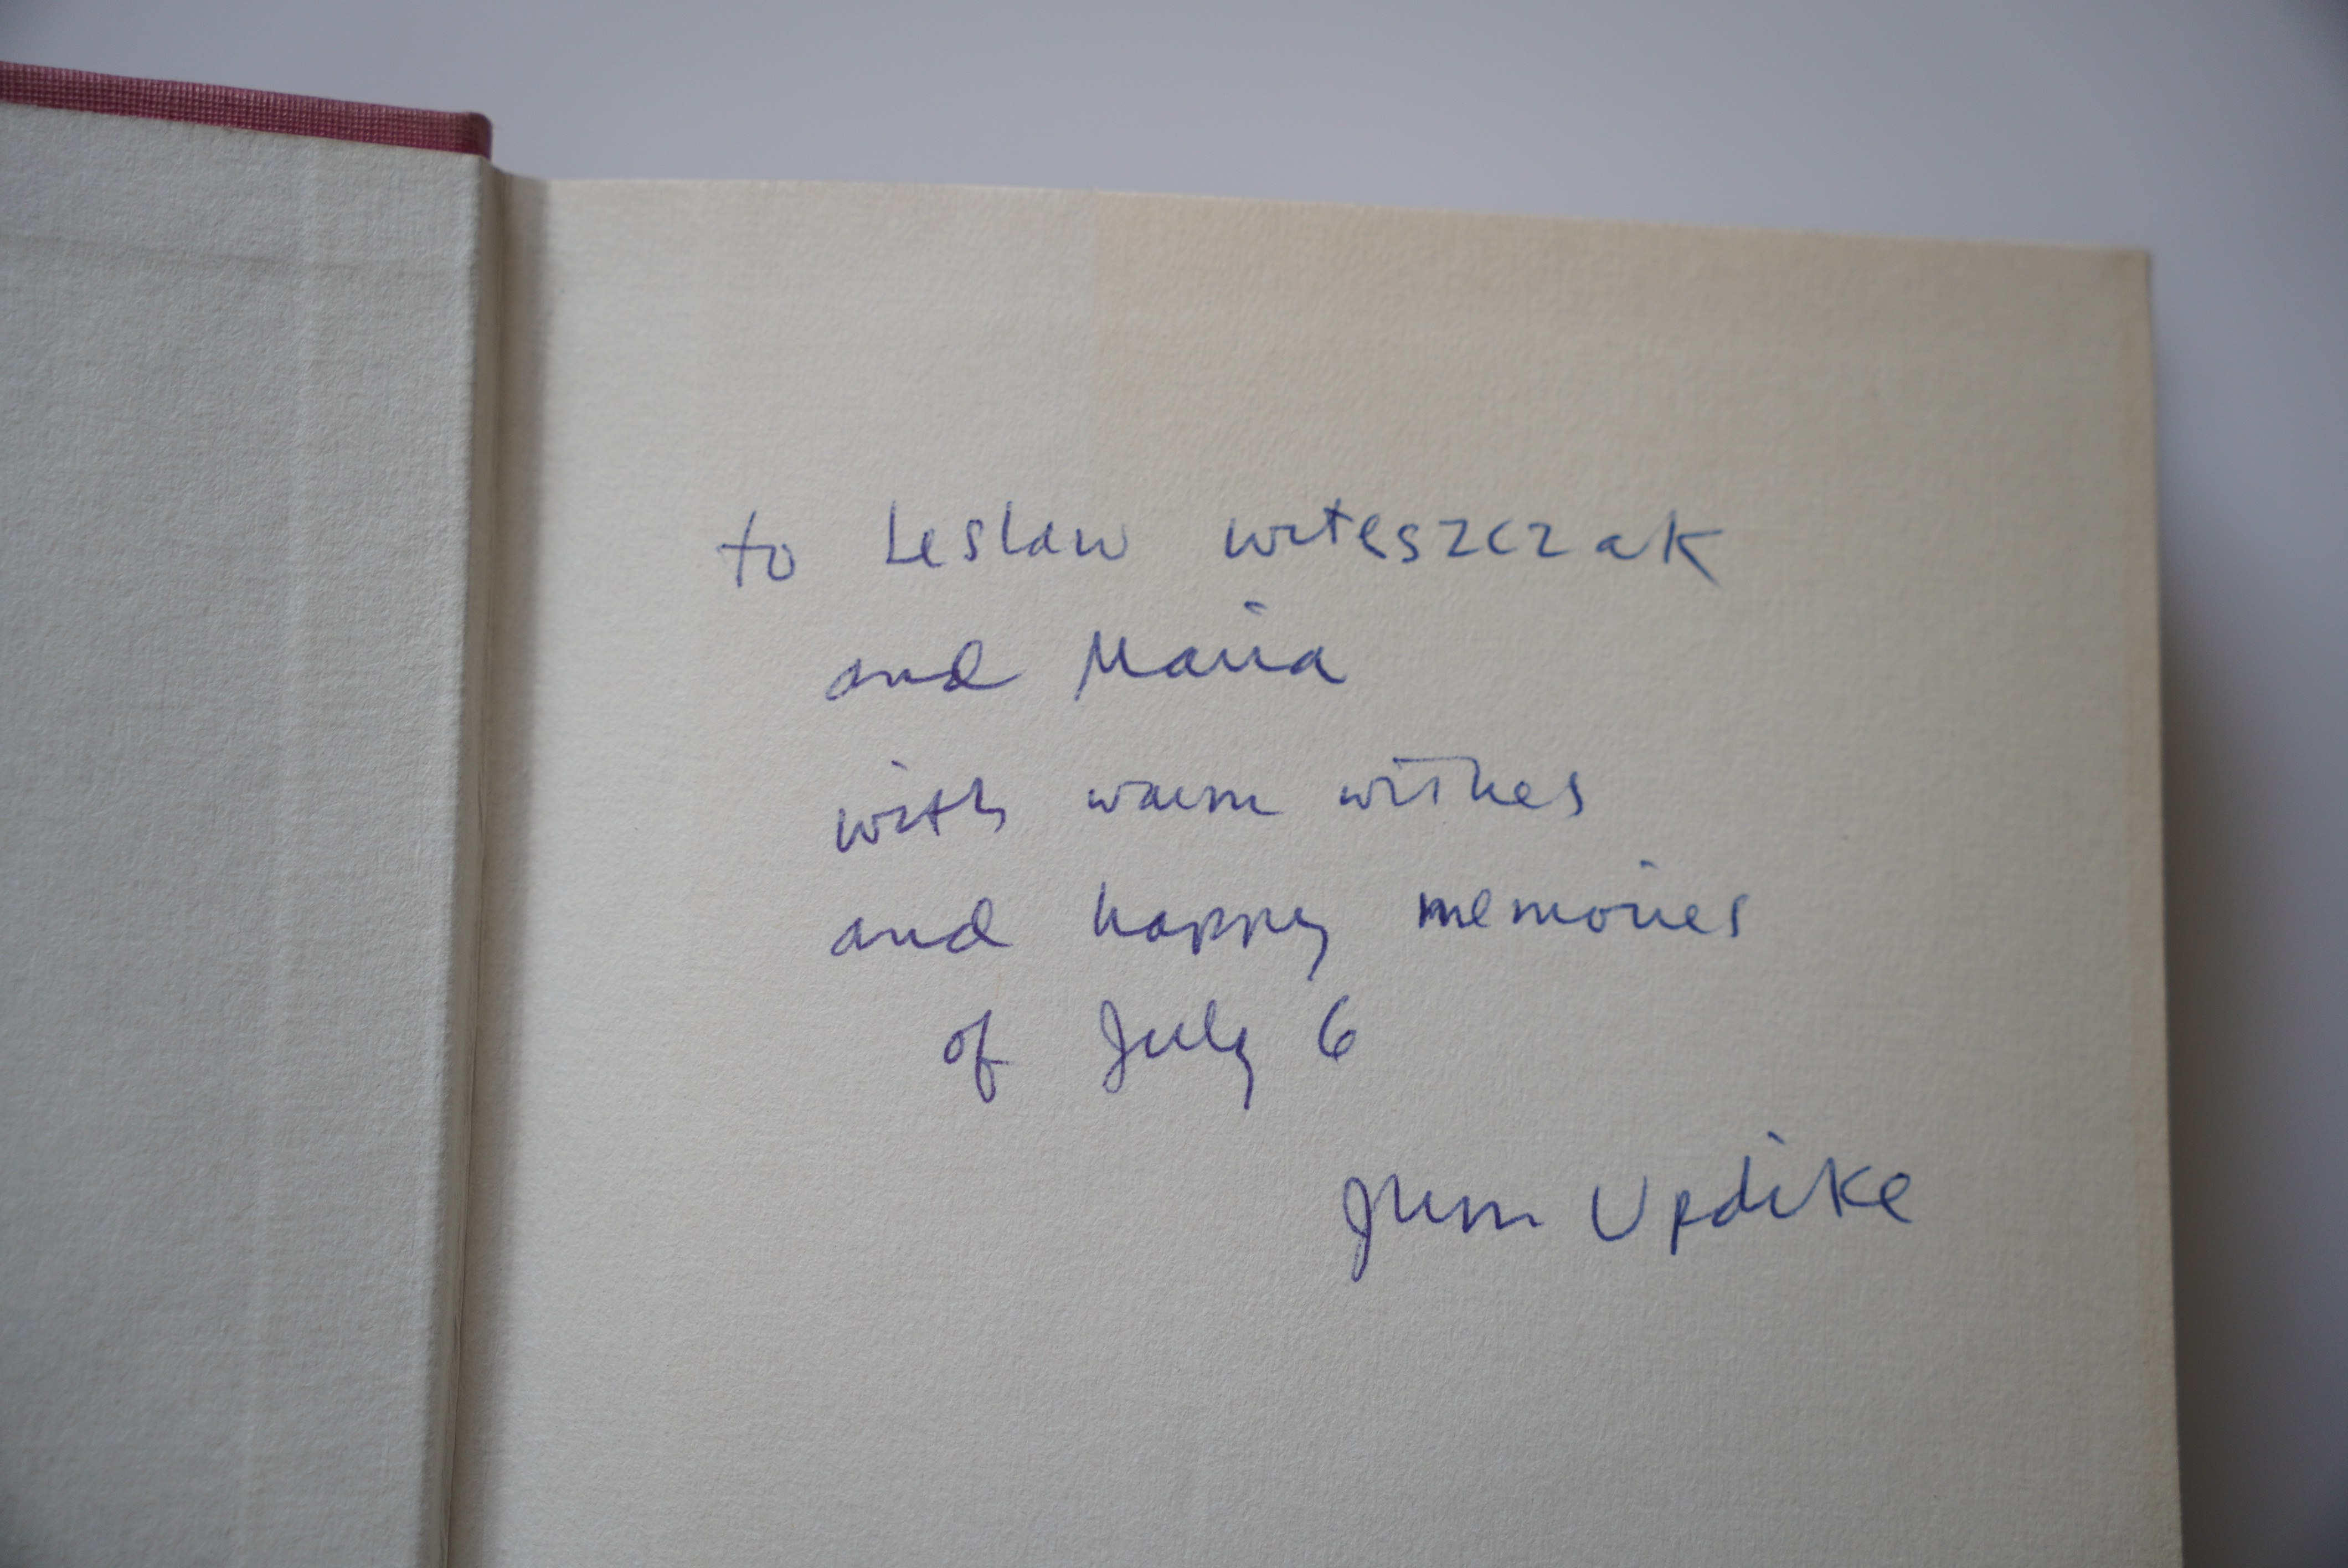 to Leslaw Witeszczak
and Maria
with warm wishes
and happy memories
of July 6
John Updike